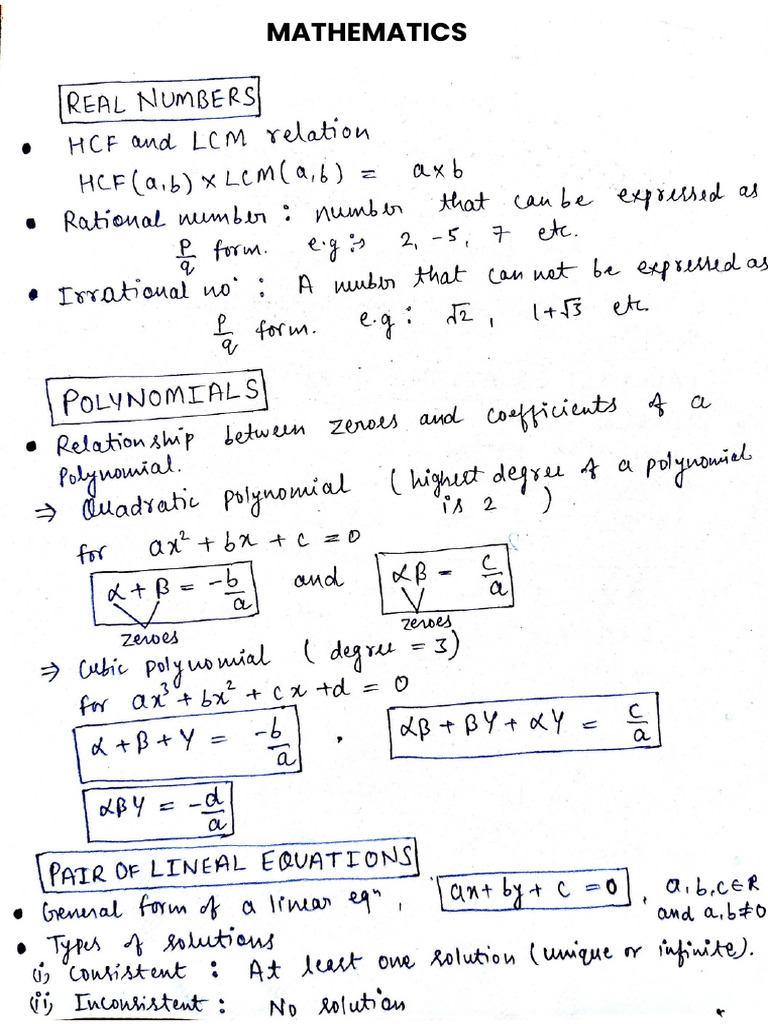 MATHEMATICS
REAL NUMBERS
• HCF and LCM relation
HCF(a,b) × LCM(a,b) = a×b
• Rational number : number that can be expressed as
p/q form. e.g :→ 2, -5, 7 etc.
• Irrational no. : A nuber that can not be expressed as
p/q form. e.g : √2, 1+√3 etc.
POLYNOMIALS
• Relationship between zeroes and coefficients of a
polynomial.
⇒ Quadratic polynomial (highest degree of a polynomial
is 2 )
for ax² + bx + c = 0
α + β = -b/a and αβ = c/a
zeroes zeroes
⇒ Cubic polynomial ( degree = 3)
for ax³ + bx² + cx + d = 0
α + β + γ = -b/a , αβ + βγ + αγ = c/a
αβγ = -d/a
PAIR OF LINEAL EQUATIONS
• General form of a linear eqⁿ, ax + by + c = 0, a,b,c ∈ R
and a,b ≠ 0
• Types of solutions
(i) Consistent : At least one solution (unique or infinite).
(ii) Inconsistent : No solution